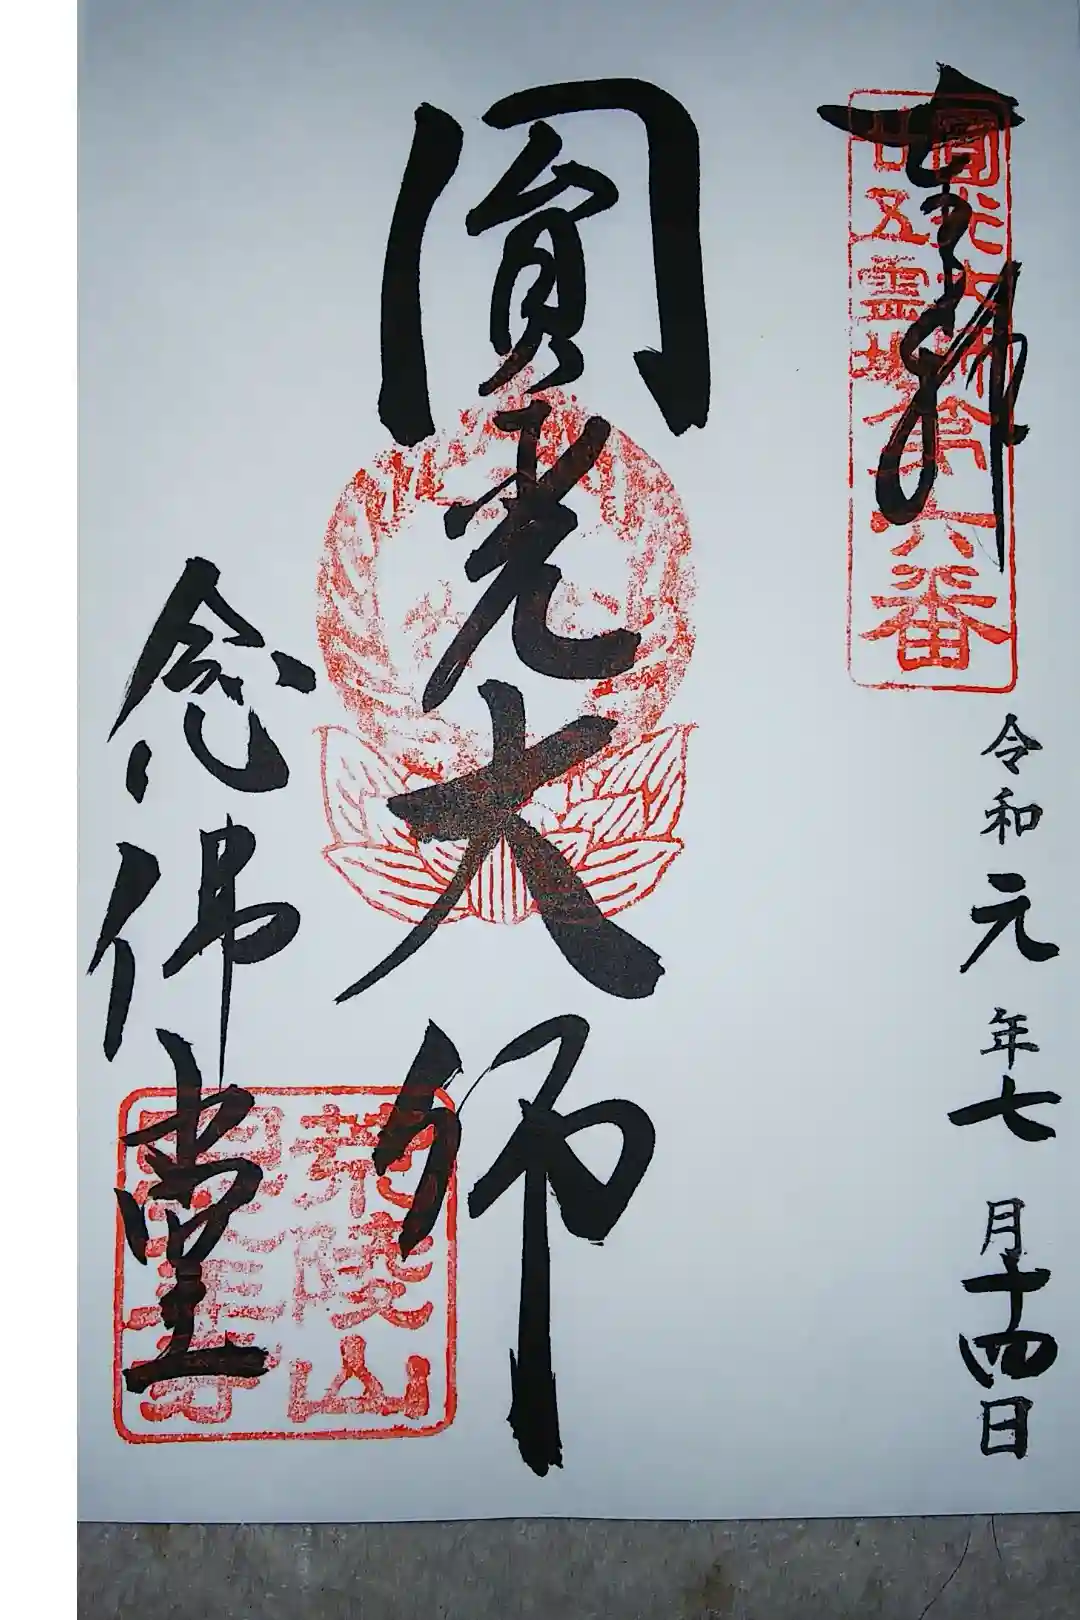 奉拝
圓光大師
廿五霊場第六番
令和元年七月十四日
圓光大師
念佛堂
荒陵山
四天王寺